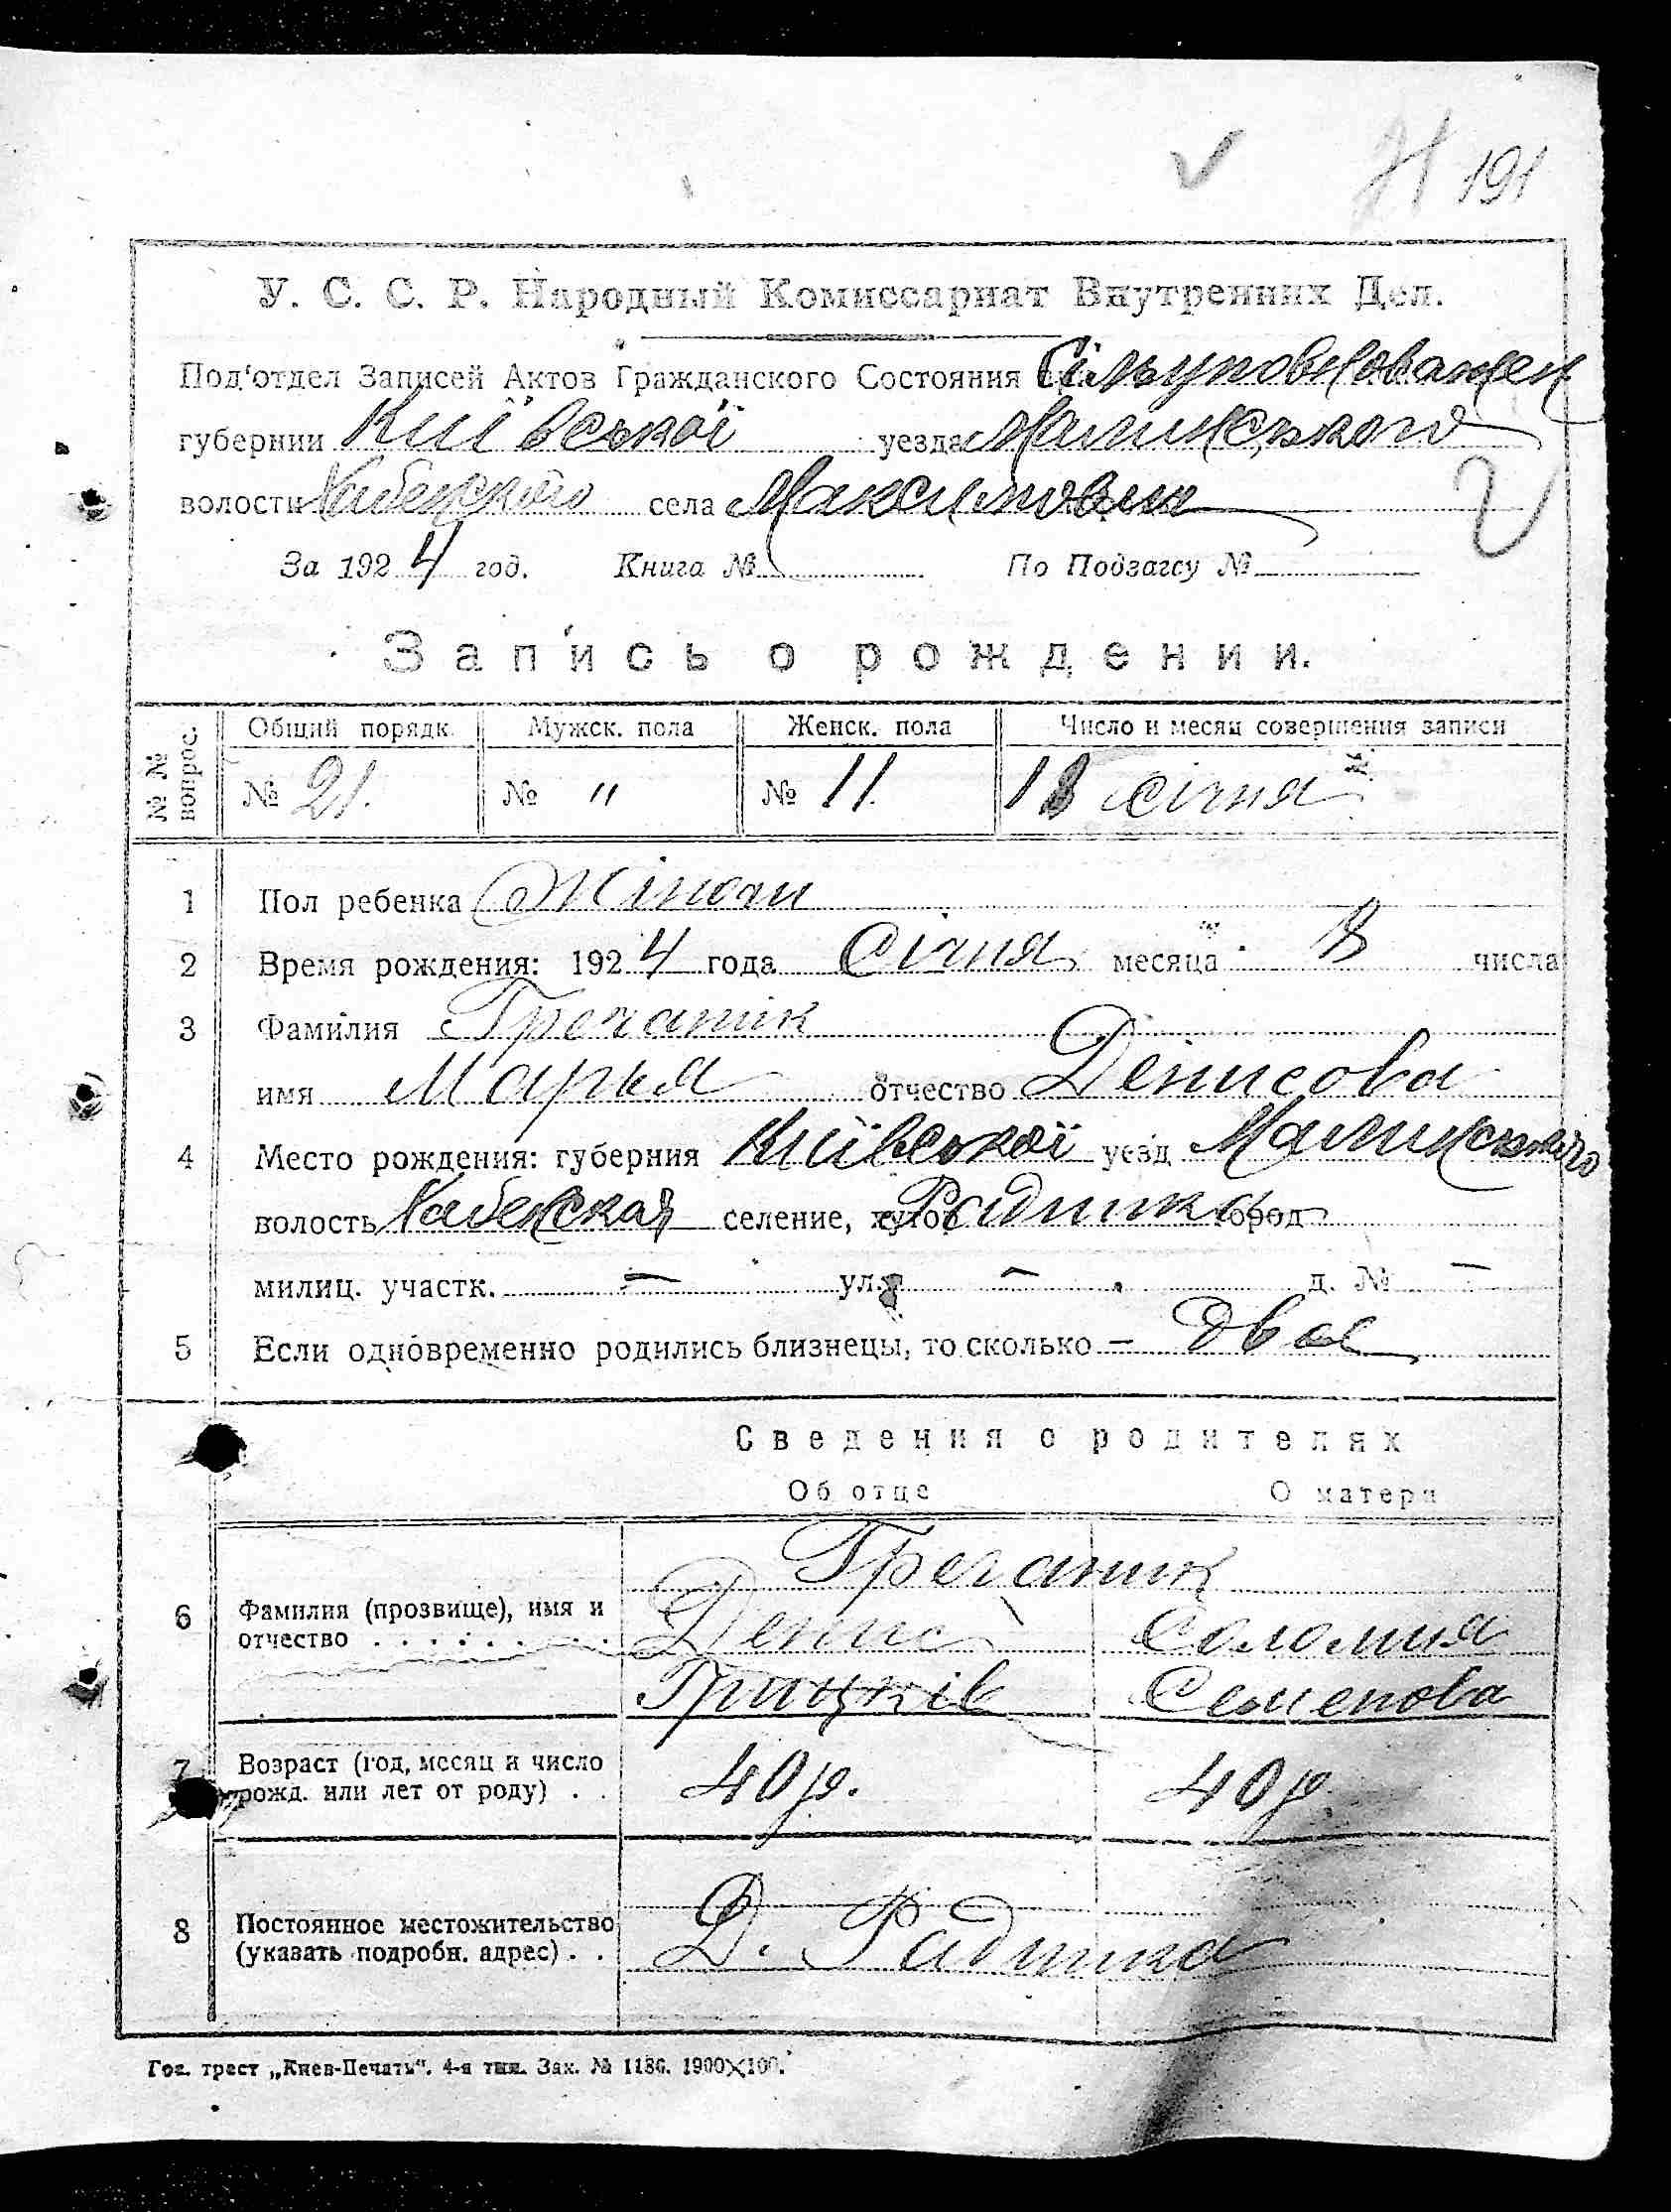 191
У. С. С. Р. Народный Комиссариат Внутренних Дел.
Под'отдел Записей Актов Гражданского Состояния
губернии Київської уезда Малинського
волости Хабенского села Максимович
За 1924 год. Книга № По Подзагсу №
Запись о рождении.
№ № вопрос. Общий порядк. Мужск. пола Женск. пола Число и месяц совершения записи
№ 21. № " № 11. 18 січня
1 Пол ребенка Жіночи
2 Время рождения: 1924 года Січня месяца 8 числа
3 Фамилия Гречаник
имя Марья отчество Денисова
4 Место рождения: губерния Київської уезд Малинського
волость Хабенская селение, хутор Радинка город
милиц. участк. – ул. – д. № –
5 Если одновременно родились близнецы, то сколько – двое
Сведения о родителях
Об отце О матери
Гречаник
6 Фамилия (прозвище), имя и отчество . . . . . . . . Денис Соломия
Грицків Семенова
7 Возраст (год, месяц и число рожд. или лет от роду) . . 40 р. 40 р.
8 Постоянное местожительство (указать подробн. адрес) . . Д. Радинка
Гос. трест „Киев-Печать". 4-я тип. Зак. № 1186. 1900×100.